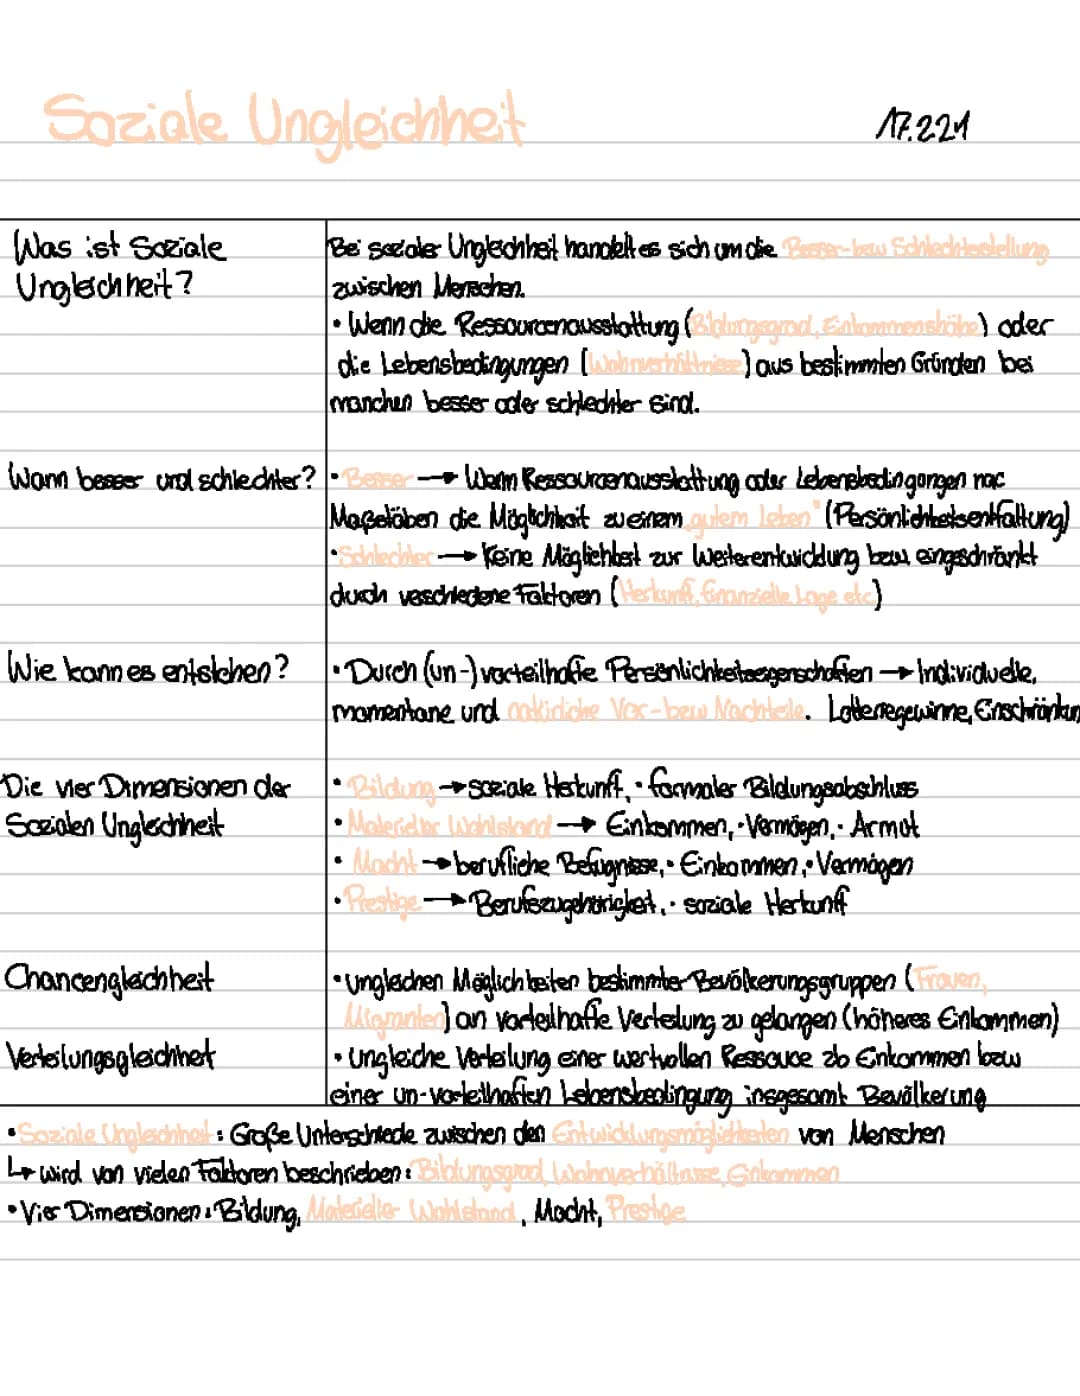 Soziale Ungleichheit
17.2.21
Was ist Soziale
Ungleichheit?
Bei sozialer Ungleichheit handelt es sich um die Besser-bzw Schlechterstellung
zwischen Menschen.
• Wenn die Ressourcenausstattung (Bildungsgrad, Einkommenshöhe) oder
die Lebensbedingungen (Wohnverhältnisse) aus bestimmten Gründen bei
manchen besser oder schlechter sind.
Wann besser und schlechter?
• Besser → Wenn Ressourcenausstattung oder Lebensbedingungen nac
Maßstäben die Möglichkeit zu einem „gutem Leben" (Persönlichkeitsentfaltung)
• Schlechter → Keine Möglichkeit zur Weiterentwicklung bzw eingeschränkt
durch verschiedene Faktoren (Herkunft, finanzielle Lage etc)
Wie kann es entstehen?
• Durch (un-)vorteilhafte Persönlichkeitseigenschaften → Individuelle,
momentane und natürliche Vor-bzw Nachteile. Lotteriegewinne, Einschränkun
Die vier Dimensionen der
Sozialen Ungleichheit
• Bildung → soziale Herkunft, • formaler Bildungsabschluss
• Materieller Wohlstand → Einkommen, • Vermögen, • Armut
• Macht → berufliche Befugnisse, • Einkommen, • Vermögen
• Prestige → Berufszugehörigkeit, • soziale Herkunft
Chancengleichheit
• ungleichen Möglichkeiten bestimmter Bevölkerungsgruppen (Frauen,
Migranten) an vorteilhafte Verteilung zu gelangen (höheres Einkommen)
Verteilungsgleichheit
• Ungleiche Verteilung einer wertvollen Ressouce zb Einkommen bzw
einer un-vorteilhaften Lebensbedingung insgesamt Bevölkerung
• Soziale Ungleichheit: Große Unterschiede zwischen den Entwicklungsmöglichkeiten von Menschen
↳ wird von vielen Faktoren beschrieben: Bildungsgrad, Wohnverhältnisse, Einkommen
• Vier Dimensionen: Bildung, Materieller Wohlstand, Macht, Prestige